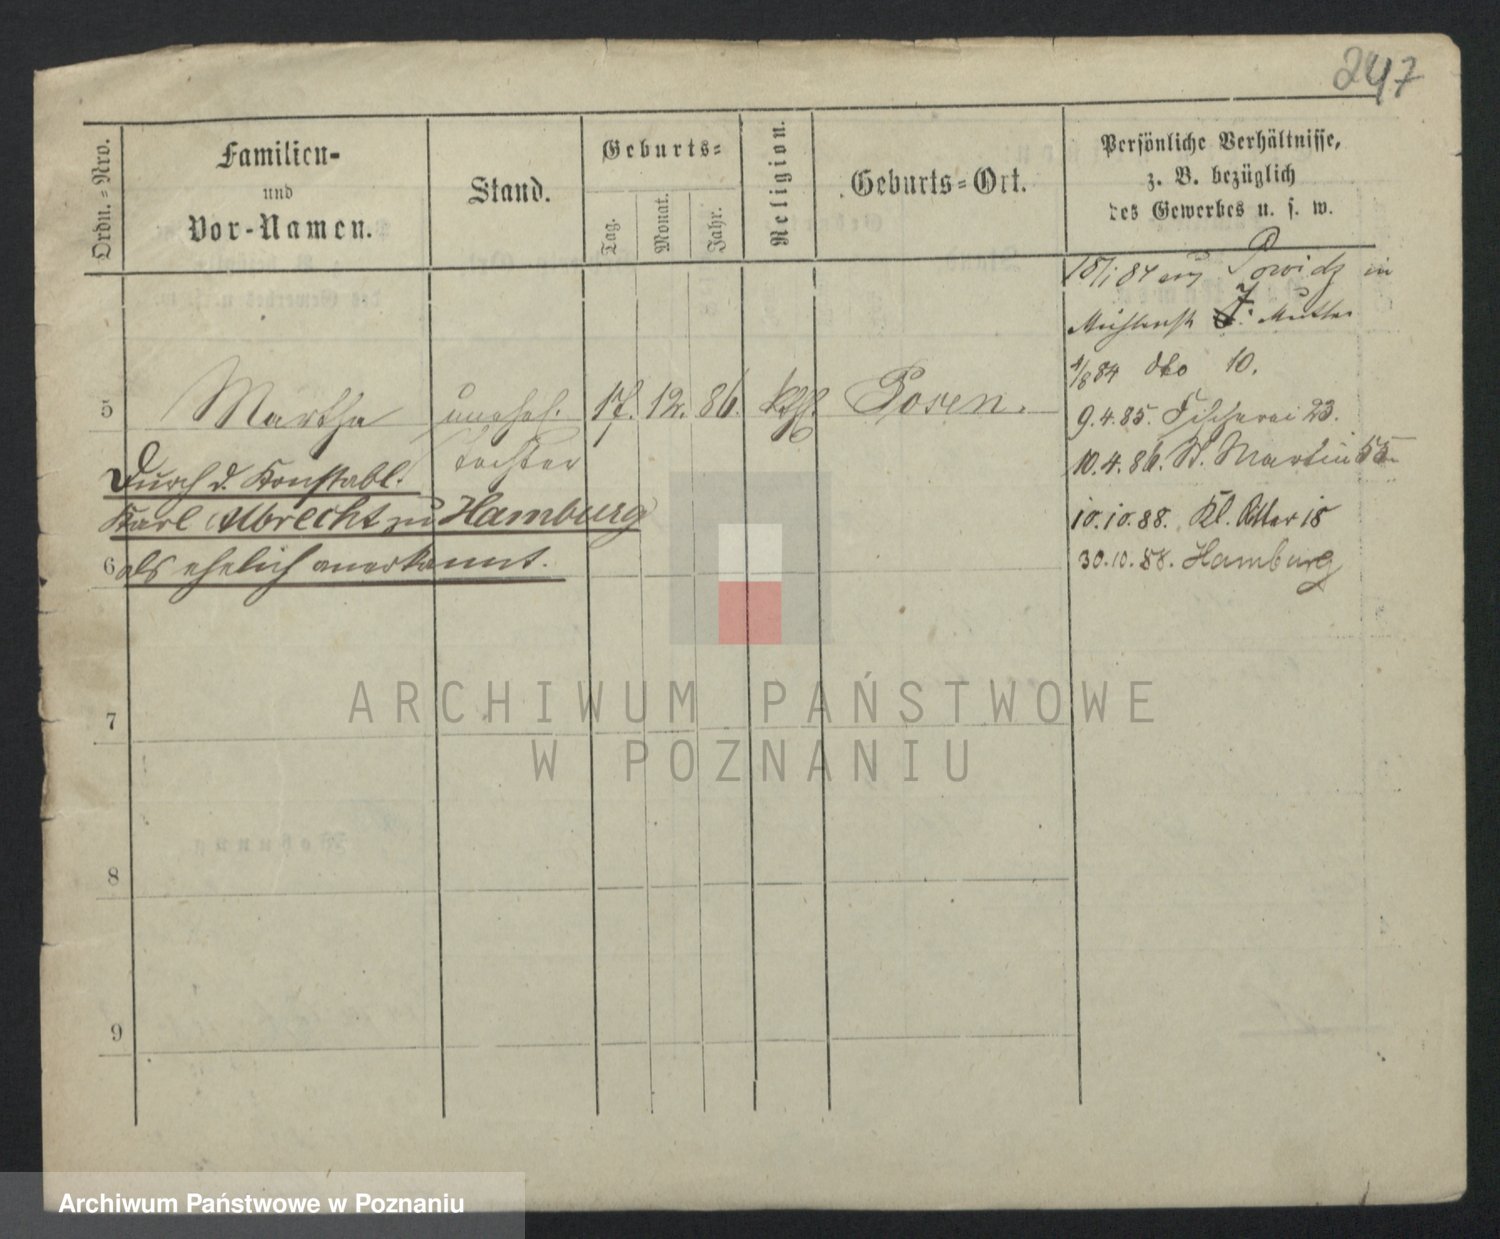 247
Ordn.-Nro.
Familien-
und
Vor-Namen.
Stand.
Geburts-
Tag.
Monat.
Jahr.
Religion.
Geburts-Ort.
Persönliche Verhältnisse,
z. B. bezüglich
des Gewerbes u. s. w.
18/1 84 aus Powidz in
7. Mutter
4/8 84 dto 10.
5 Martha unehel. 17. 12. 86. kth. Posen.
Tochter
9.4.85. Fischerei 23.
10.4.86. St. Martin 55
10.10.88. Kl. Ritter 18
30.10.88. Hamburg
Durch d. Konstabl.
Karl Albrecht zu Hamburg
6 als ehelich anerkannt.
7
8
9
ARCHIWUM PAŃSTWOWE
W POZNANIU
Archiwum Państwowe w Poznaniu